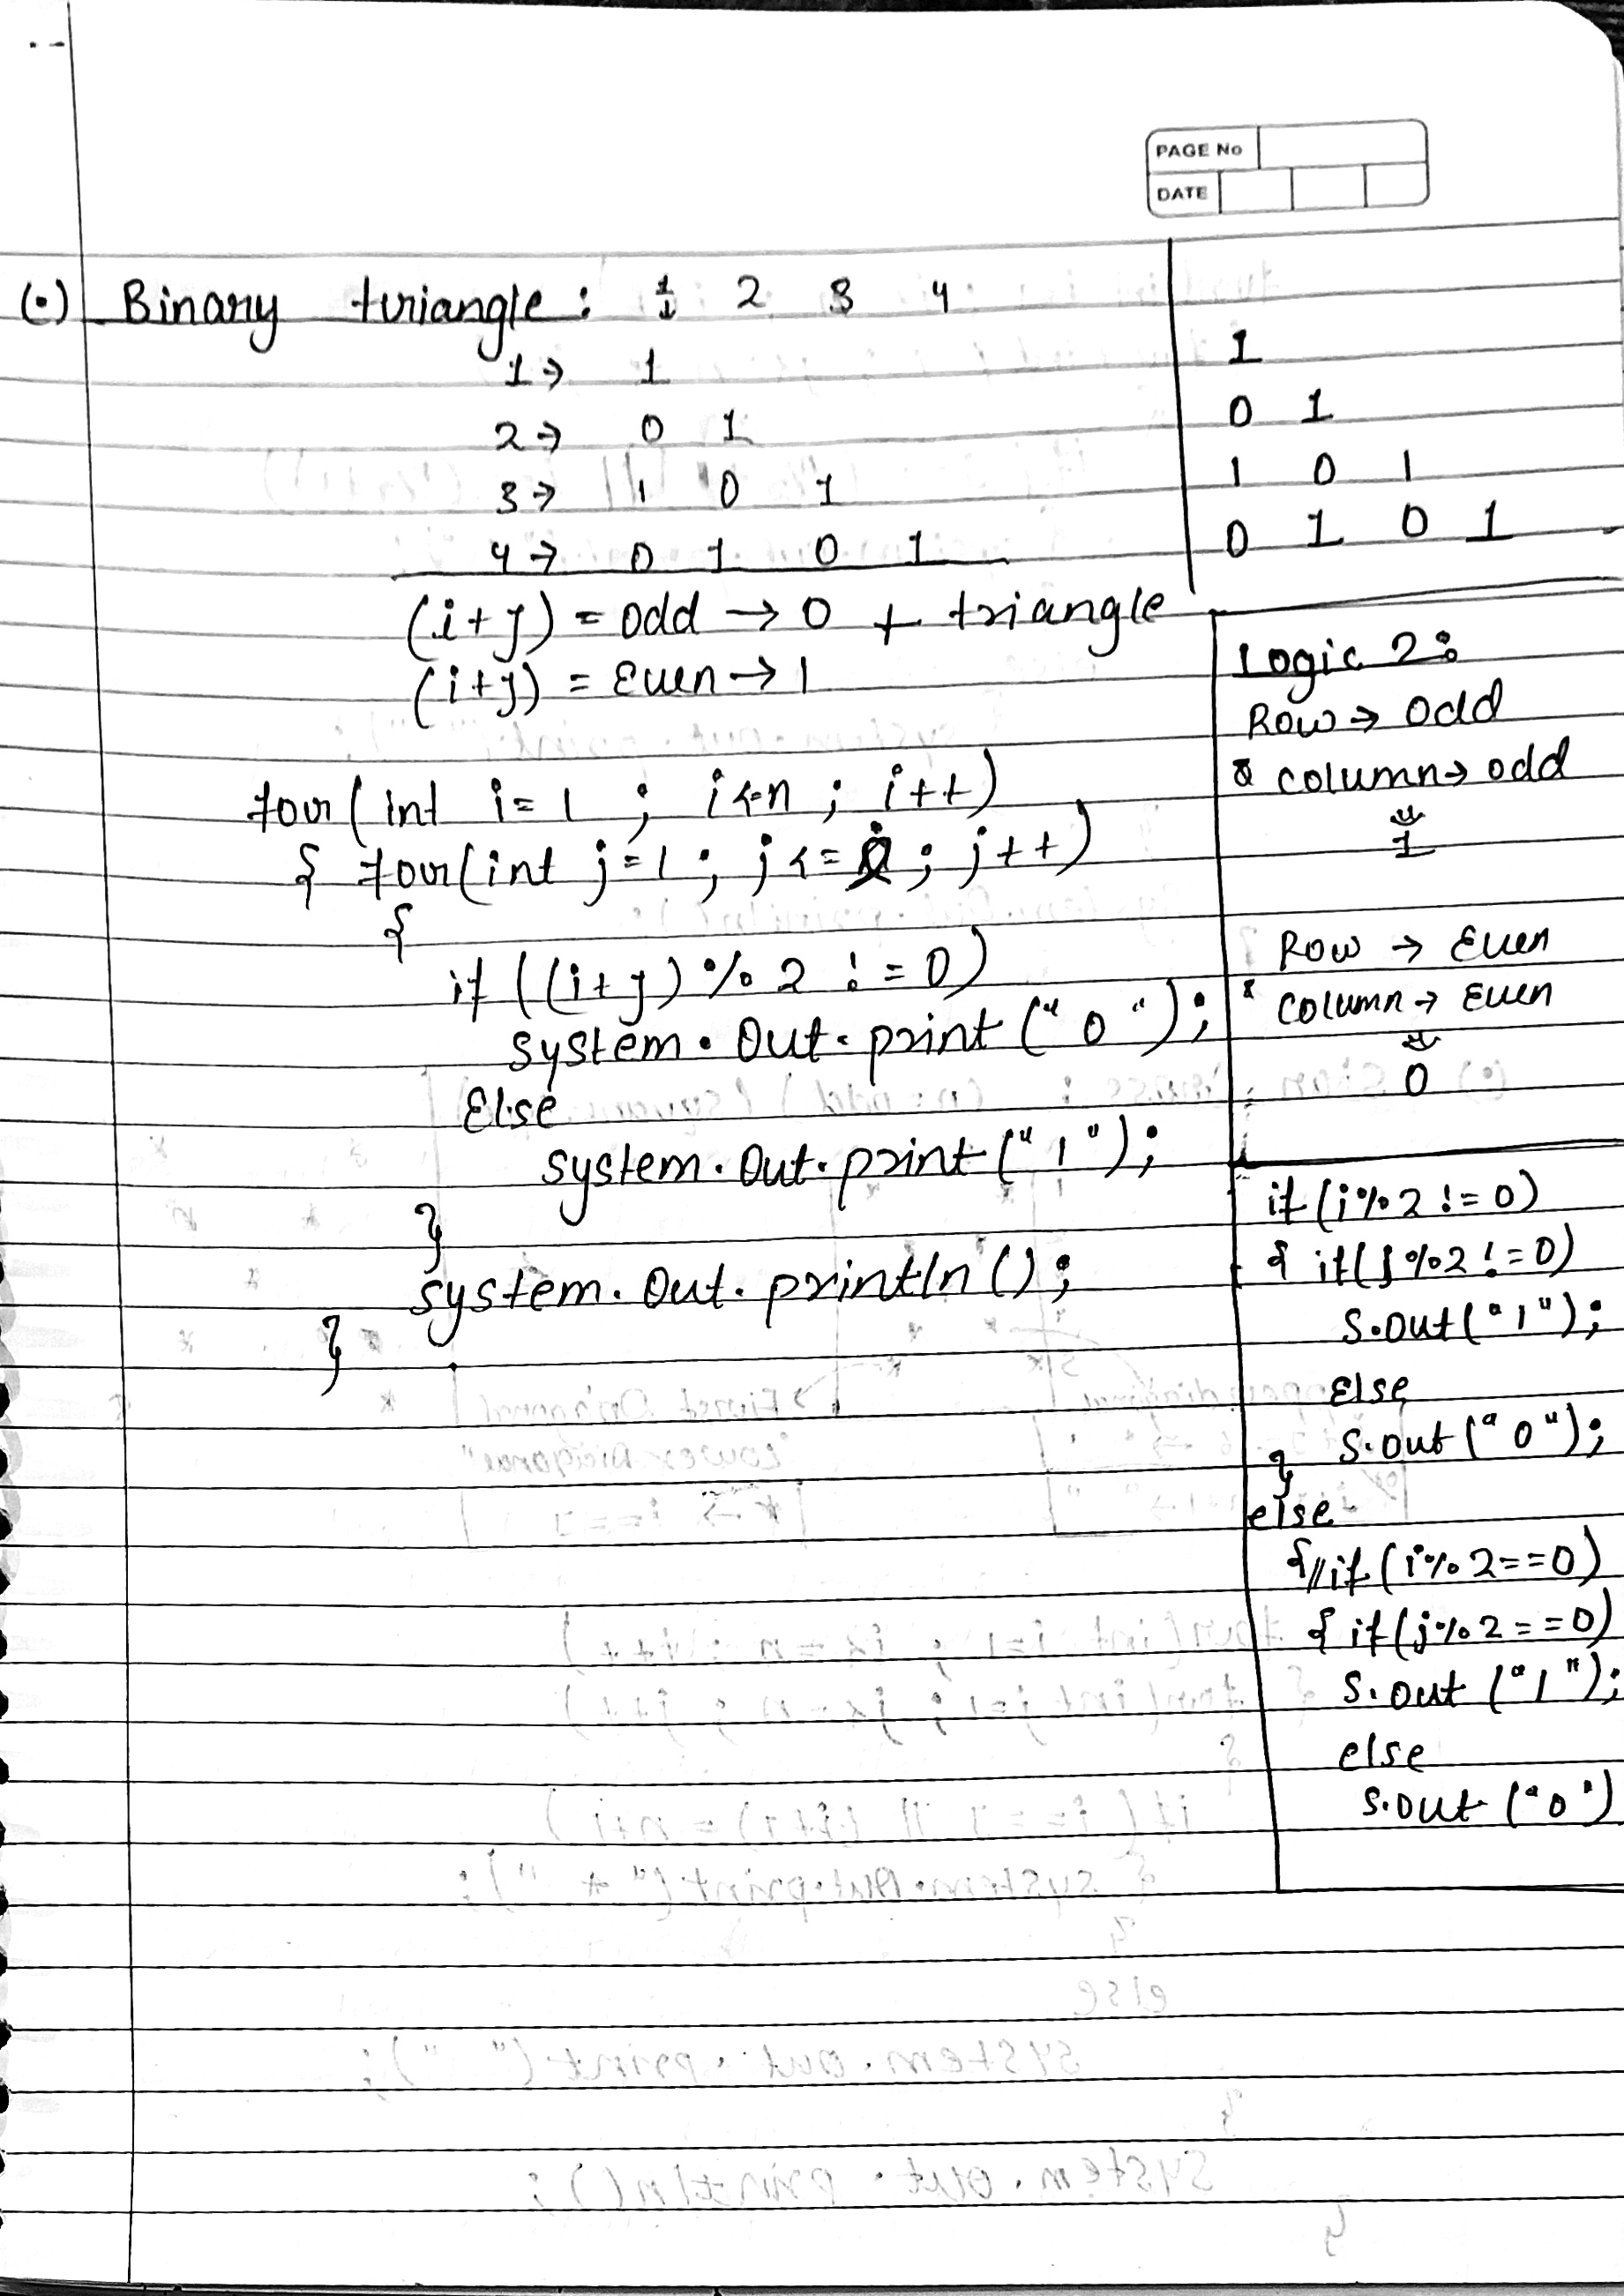 PAGE No
DATE
(•) Binary triangle : 1 2 3 4
1 → 1
2 → 0 1
3 → 1 0 1
4 → 0 1 0 1
(i+j) = odd → 0 + triangle
(i+j) = Even → 1
for ( int i = 1 ; i <= n ; i++)
{ for(int j = 1 ; j <= i ; j++)
{
if ((i+j) % 2 != 0)
system.Out.print (" 0 ");
Else
system.Out.print (" 1 ");
}
system.Out.println ();
}
1
0 1
1 0 1
0 1 0 1
Logic 2:
Row → Odd
& column → odd
⇓
1
Row → Even
& column → Even
⇓
0
if (i%2 != 0)
{ if(j%2 != 0)
S.out("1");
Else
S.out("0");
}
else
{//if (i%2==0)
{ if(j%2==0)
S.out ("1");
else
S.out ("0")